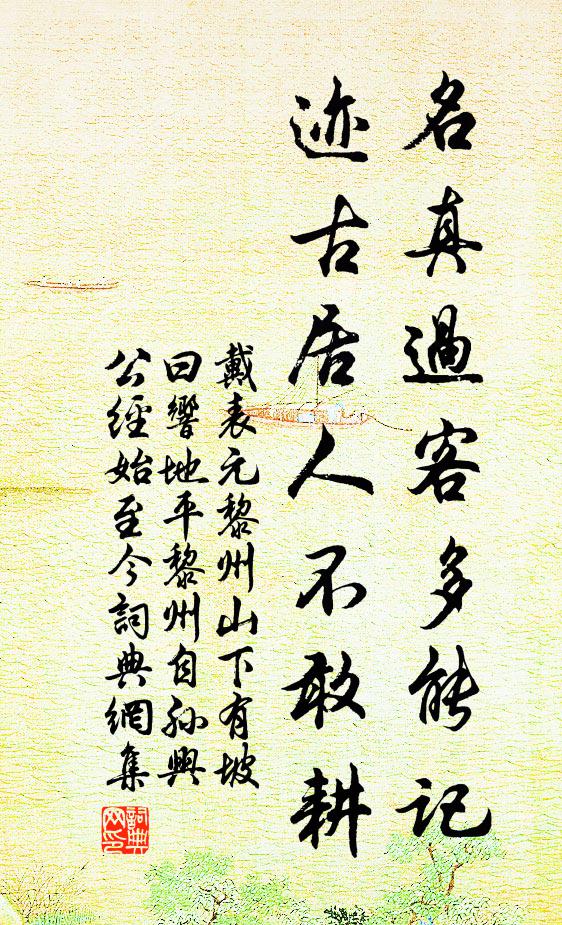 名真過客多能記
迹古居人不敢耕
戴表元黎州山下有坡
曰響地平黎州自孙興
公經始至今詞典網集
詞典
网印